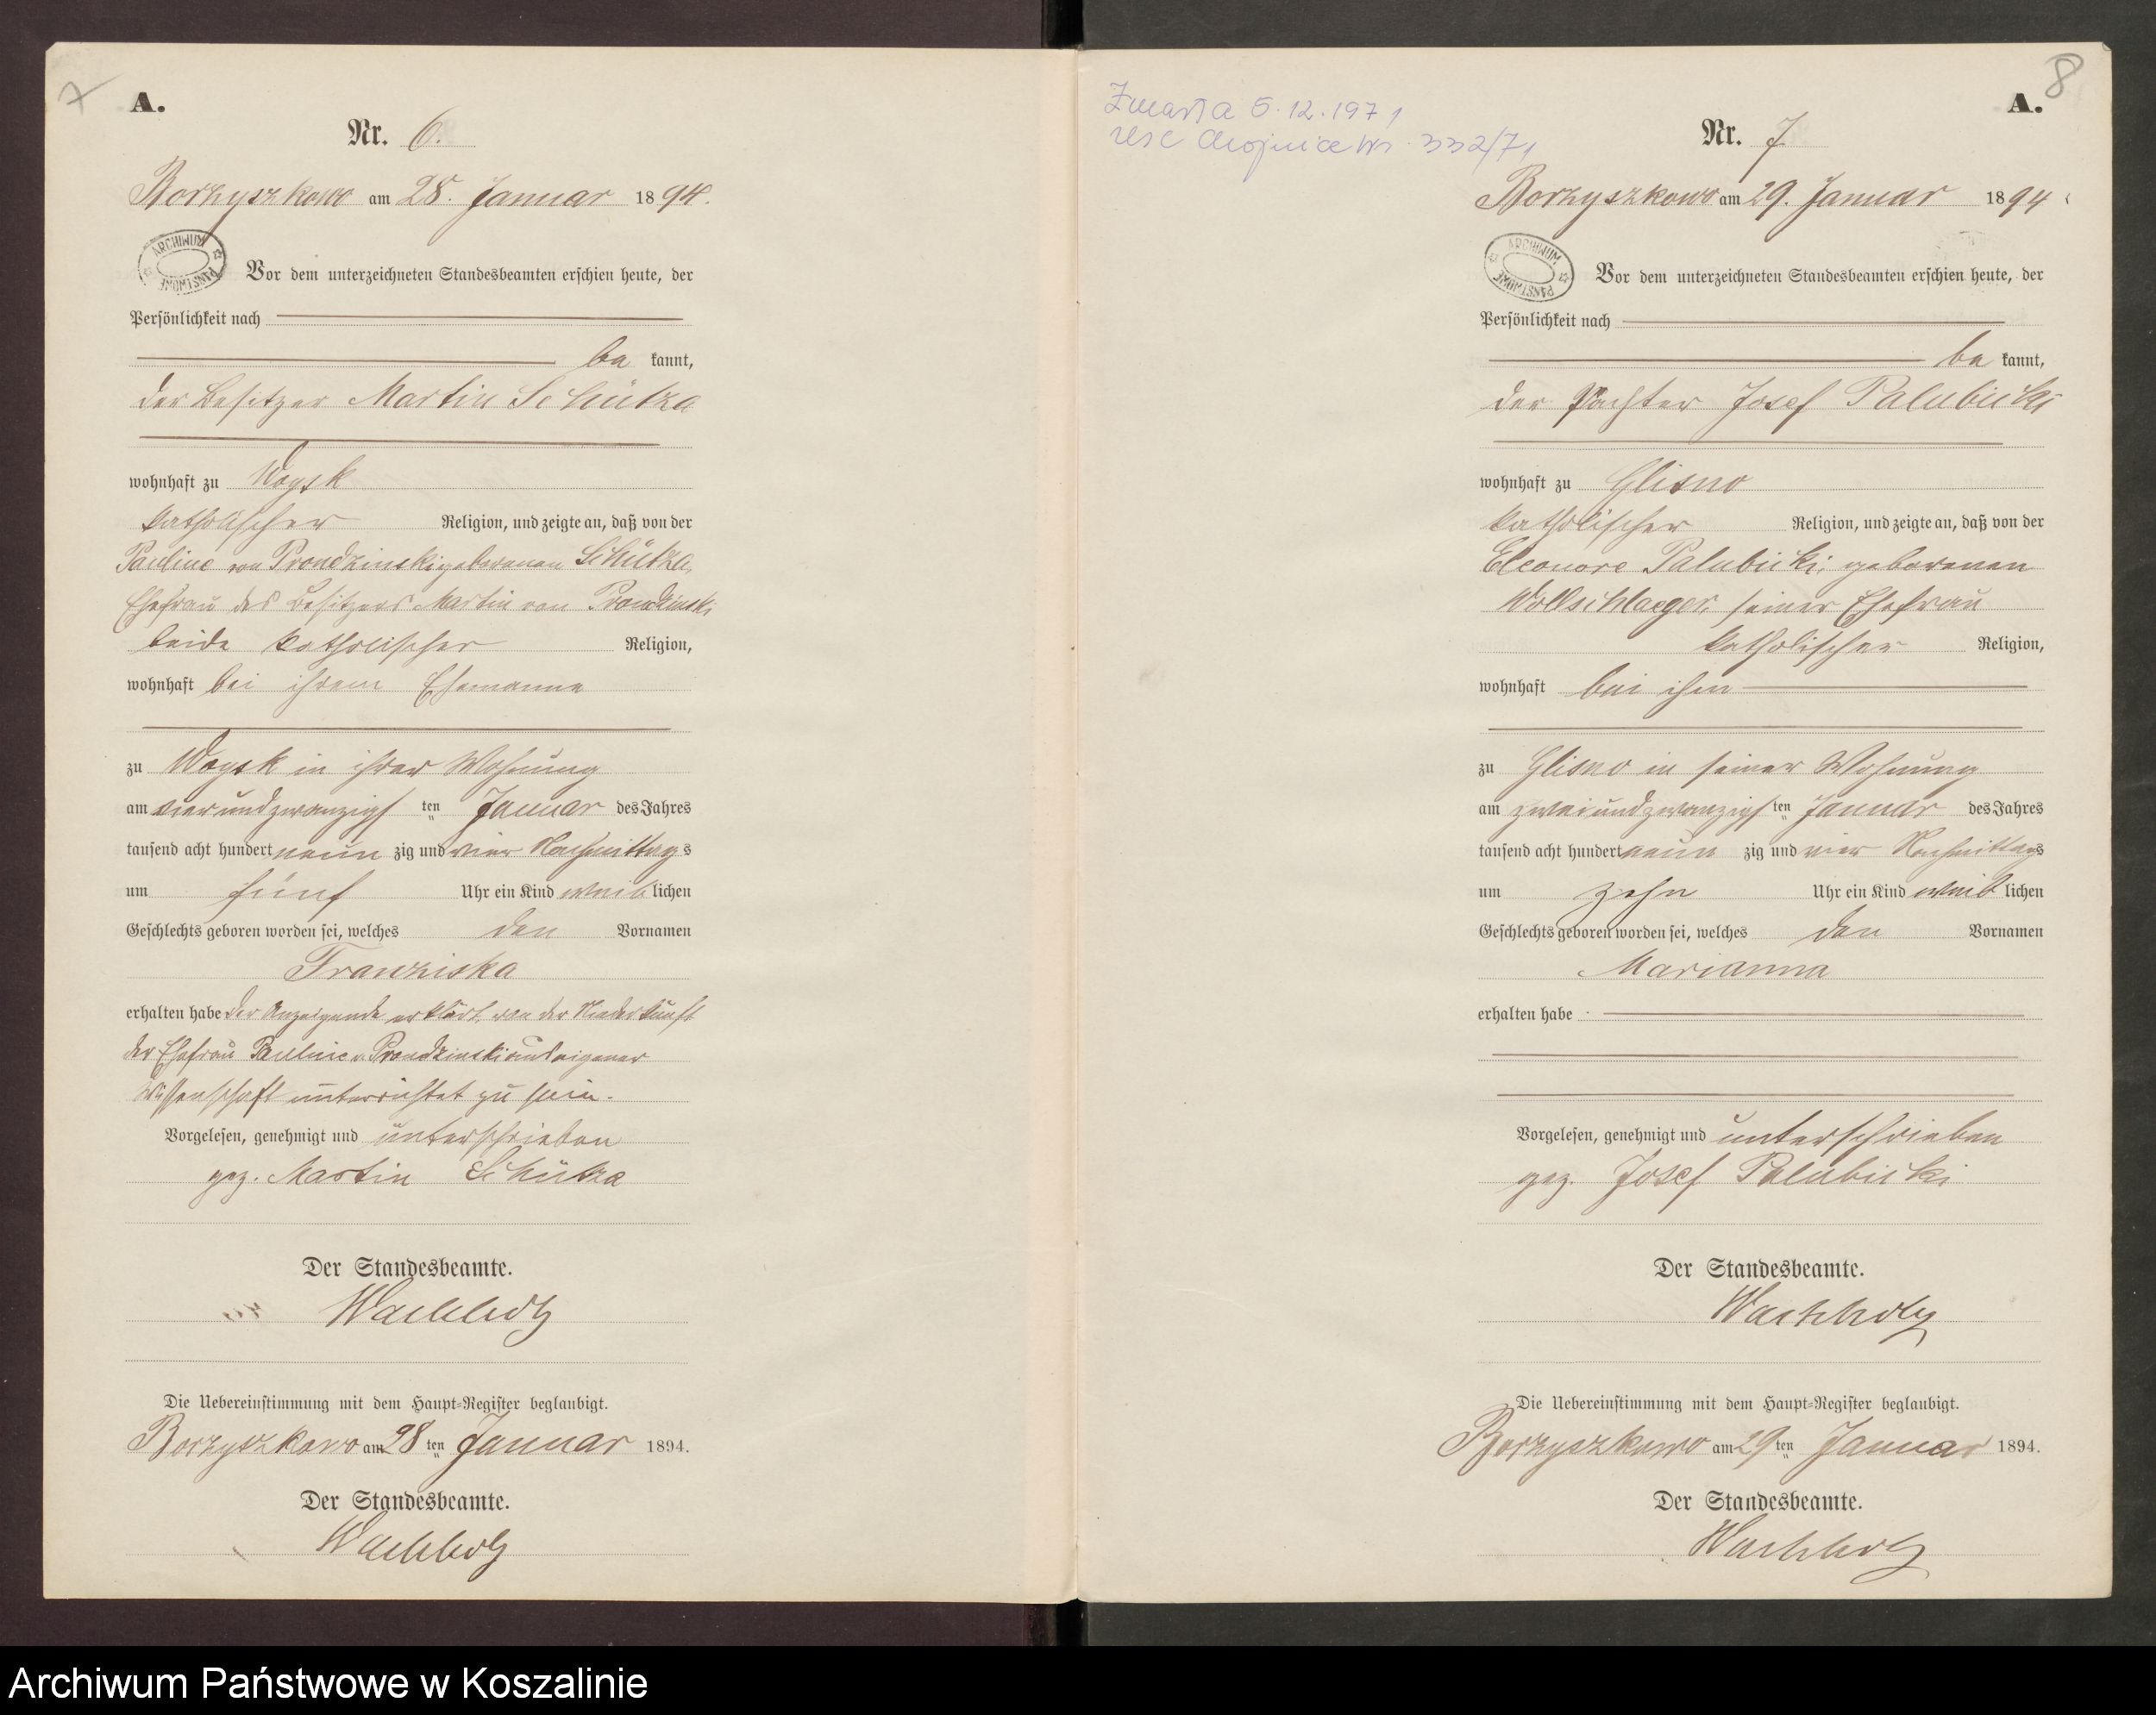 7
A.
Nr. 6.
Borzyszkowo am 28. Januar 1894.
ARCHIWUM PAŃSTWOWE
Vor dem unterzeichneten Standesbeamten erschien heute, der
Persönlichkeit nach
be kannt,
der Besitzer Martin Schütza
wohnhaft zu Woysk
katholischer Religion, und zeigte an, daß von der
Pauline von Prondzinski geborenen Schütza,
Ehefrau des Besitzers Martin von Prondzinski
beide katholischer Religion,
wohnhaft bei ihrem Ehemanne
zu Woysk in ihrer Wohnung
am vierundzwanzigs ten Januar des Jahres
tausend acht hundert neun zig und vier Nachmittags
um fünf Uhr ein Kind weib lichen
Geschlechts geboren worden sei, welches den Vornamen
Franziska
erhalten habe Der Anzeigende erklärt, von der Niederkunft
der Ehefrau Pauline v. Prondzinski aus eigener
Wissenschaft unterrichtet zu sein.
Vorgelesen, genehmigt und unterschrieben
gez. Martin Schütza
Der Standesbeamte.
Wachholz
Die Uebereinstimmung mit dem Haupt-Register beglaubigt.
Borzyszkowo am 28 ten Januar 1894.
Der Standesbeamte.
Wachholz
8
A.
Zmarła 5.12.1971
USC Chojnice Nr. 332/71
Nr. 7.
Borzyszkowo am 29. Januar 1894
ARCHIWUM PAŃSTWOWE
Vor dem unterzeichneten Standesbeamten erschien heute, der
Persönlichkeit nach
be kannt,
der Pächter Josef Palubicki
wohnhaft zu Glisno
katholischer Religion, und zeigte an, daß von der
Eleonore Palubicki, geborenen
Wollschlaeger, seiner Ehefrau
katholischer Religion,
wohnhaft bei ihm
zu Glisno in seiner Wohnung
am zweiundzwanzigs ten Januar des Jahres
tausend acht hundert neun zig und vier Nachmittags
um zehn Uhr ein Kind weib lichen
Geschlechts geboren worden sei, welches den Vornamen
Marianna
erhalten habe
Vorgelesen, genehmigt und unterschrieben
gez. Josef Palubicki
Der Standesbeamte.
Wachholz
Die Uebereinstimmung mit dem Haupt-Register beglaubigt.
Borzyszkowo am 29 ten Januar 1894.
Der Standesbeamte.
Wachholz
Archiwum Państwowe w Koszalinie